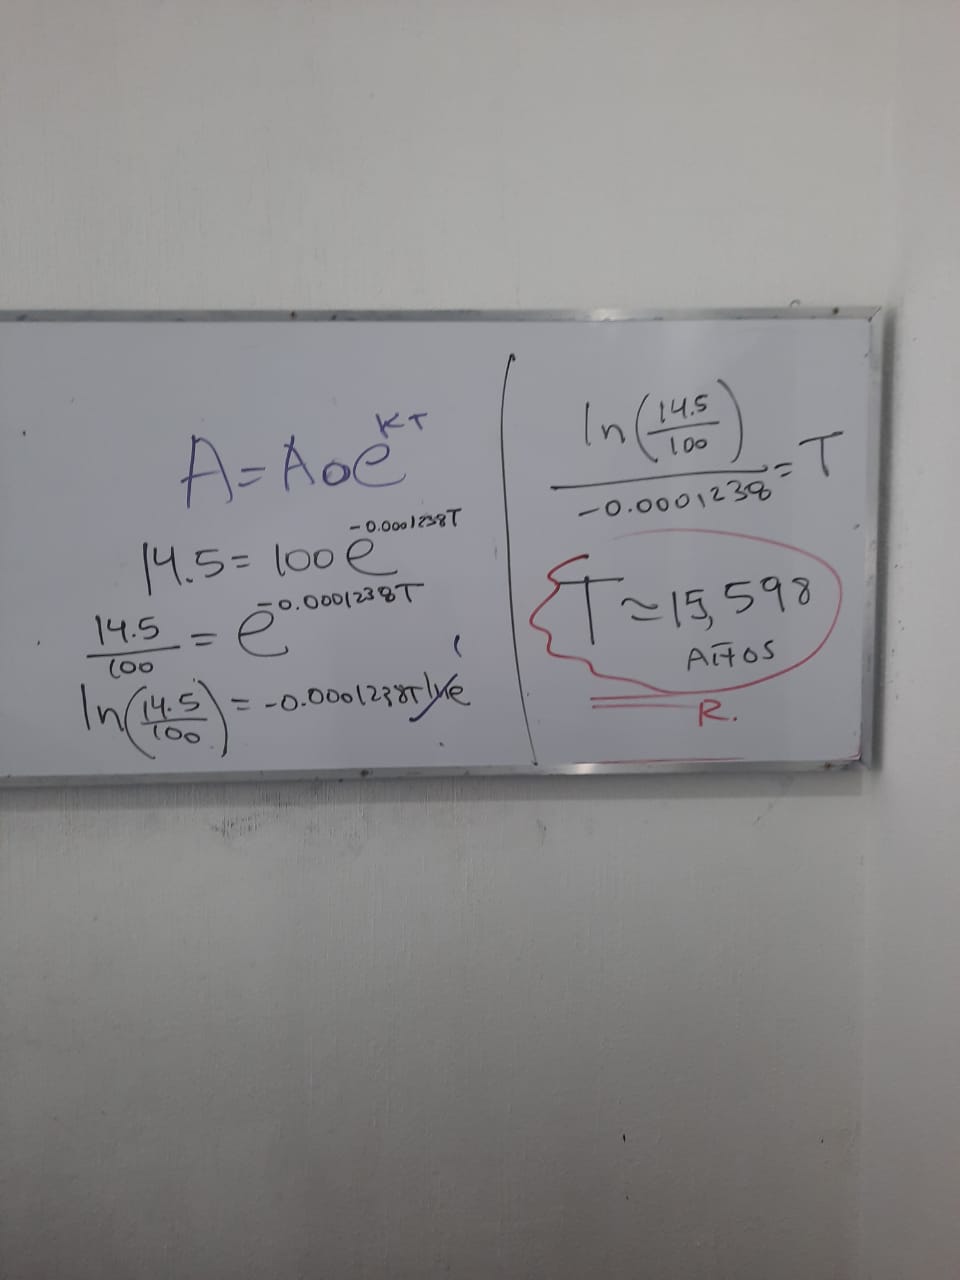 A = A₀e^KT
14.5 = 100 e^-0.0001238T
14.5/100 = e^-0.0001238T
ln(14.5/100) = -0.0001238T lne
ln(14.5/100)/-0.0001238 = T
T ≈ 15,598
AÑOS
R.